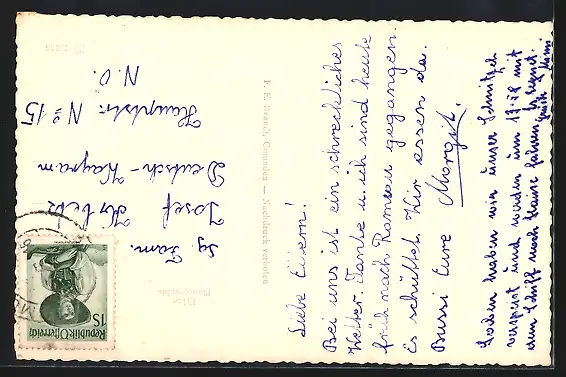 Liebe Eltern!
Bei uns ist ein schreckliches
Wetter. Tante u. ich sind heute
früh nach Ramsau gegangen.
Es schüttet. Wir essen da.
Bussi Eure Margit.
Soeben haben wir unser Schnitzel
verspeist und werden um 17.28 mit
dem Schiff nach Hause fahren. Es regnet.
F. E. Brandt, Gmunden — Nachdruck verboten
Echte
Photographie
Sg. Fam.
Josef
Deutsch-Wagram
Hauptstr. No 15
N. Ö.
1S
Republik Österreich